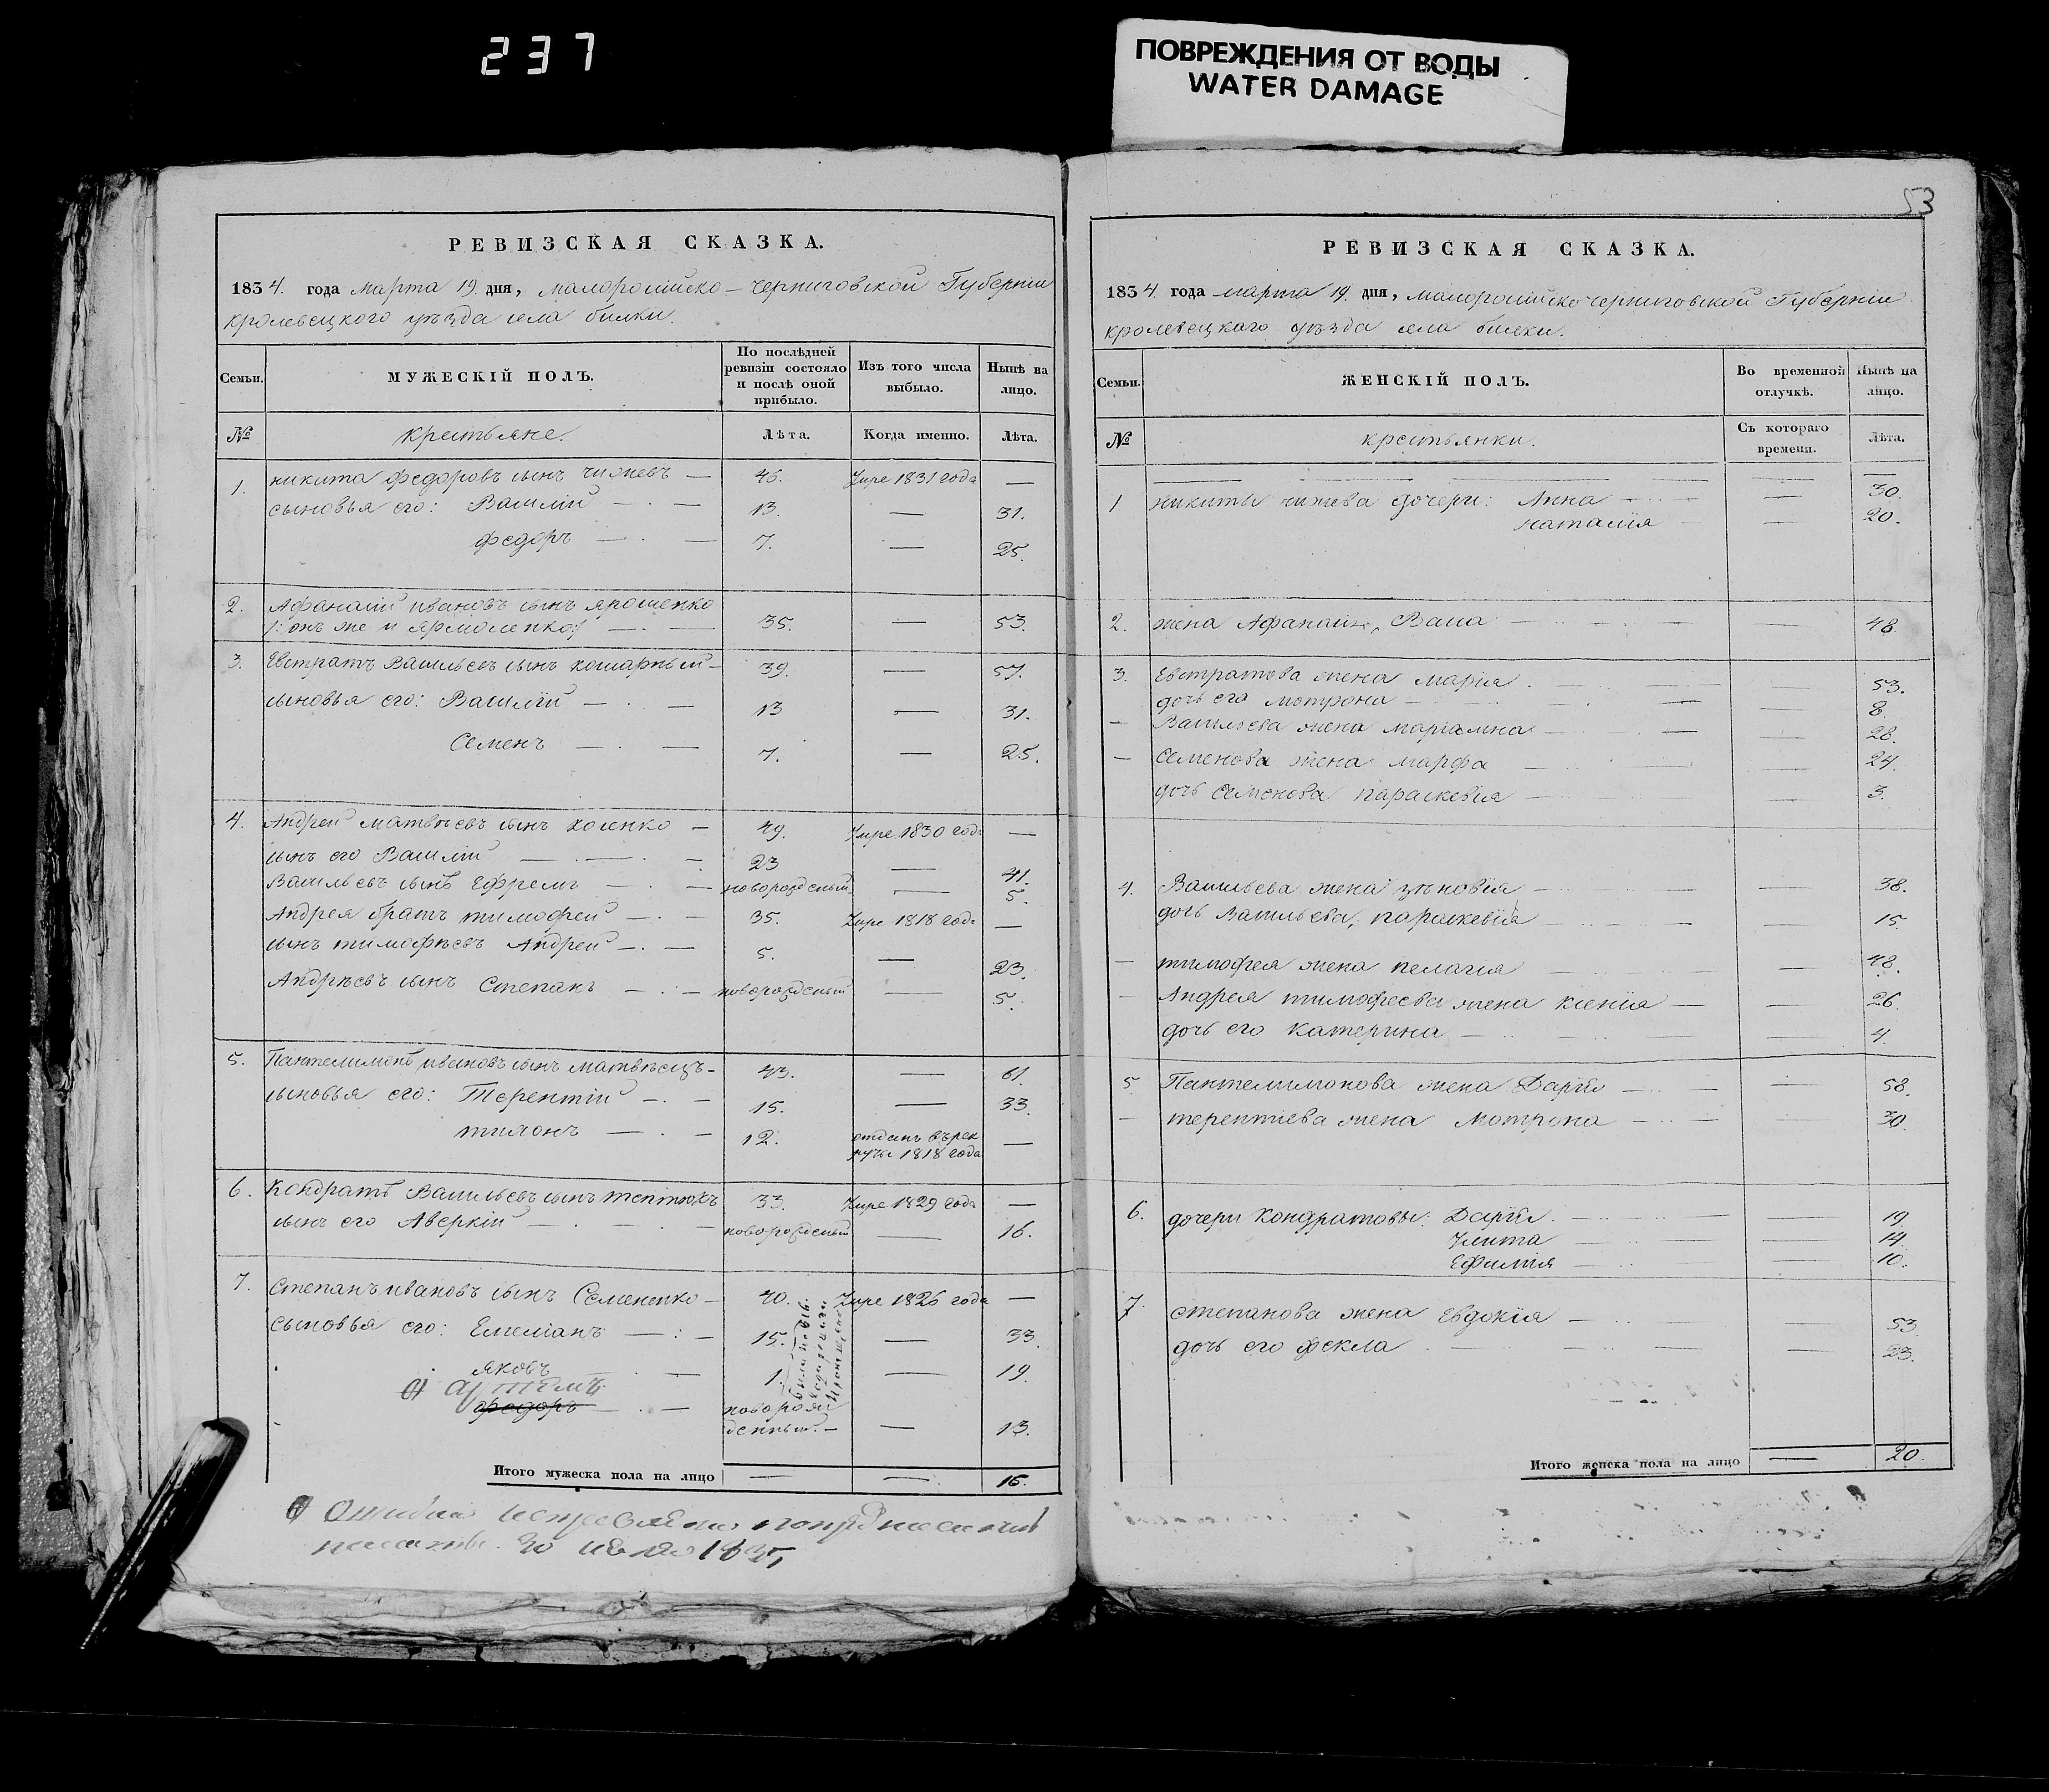 237
ПОВРЕЖДЕНИЯ ОТ ВОДЫ
WATER DAMAGE
РЕВИЗСКАЯ СКАЗКА.
1834. года марта 19. дня, малоросійско-черниговской Губерніи
кролевецкого уѣзда села билки.
Семьи.
МУЖЕСКІЙ ПОЛЪ.
По послѣдней ревизіи состояло и послѣ оной прибыло.
Изъ того числа выбыло.
Нынѣ на лицо.
№ крестьяне. Лѣта. Когда именно. Лѣта.
1. никита федоровъ сынъ чижевъ — 46. Умре 1831 года —
сыновья его: Василій — 13. — 31.
федоръ — 7. — 25.
2. Афанасій ивановъ сынъ ярошенко
/: онъ же и ярмоленко :/ — 35. — 53.
3. Евстратъ Васильевъ сынъ кошарный — 39. — 57.
сыновья его: Василій — 13 — 31.
Семенъ — 7. — 25.
4. Андрей матвѣевъ сынъ косенко — 49. Умре 1830 года —
сынъ его Василій — 23 — 41.
Васильевъ сынъ Ефремъ — новорожденый — 5.
Андрея братъ тимофей — 35. Умре 1818 года —
сынъ тимофѣевъ Андрей — 5. — 23.
Андрѣевъ сынъ Степанъ — новорожденый — 5.
5. Пантелимонъ ивановъ сынъ матвѣецъ — 43. — 61.
сыновья его: Терентій — 15. — 33.
тихонъ — 12. отданъ въ рек
руты 1818 года —
6. Кондратъ Васильевъ сынъ тептюхъ 33. Умре 1829 года —
сынъ его Аверкій — новорожденый — 16.
7. Степанъ ивановъ сынъ Семененко — 40. Умре 1826 года —
сыновья его: Емеліанъ — 15. — 33.
яковъ — 1. — 19.
Артемъ
федоръ — новорож
денный. — 13.
Итого мужеска пола на лицо — — 16.
Ошибка исправлена
1835
53
РЕВИЗСКАЯ СКАЗКА.
1834. года марта 19. дня, малоросійско черниговской Губерніи
кролевецкаго уѣзда села билки.
Семьи.
ЖЕНСКІЙ ПОЛЪ.
Во временной отлучкѣ.
Нынѣ на лицо.
№ крестьянки. Съ котораго времени. Лѣта.
1 никиты чижева дочери: Анна — — 30.
наталия — 20.
2. жена Афанасія, Васса — — 48.
3. Евстратова жена марія. — — 53.
дочь его мотрона — — 8.
— Васильева жена маріамна — — 28.
— Семенова жена марфа — — 24.
дочь Семенова параскевія — — 3.
4. Васильева жена зѣновія — — 38.
дочь Васильева, параскевія — — 15.
— тимофея жена пелагія — — 48.
— Андрея тимофеева жена ксенія — — 26.
дочь его катерина — — 4.
5 Пантелимонова жена Дарія — — 58.
— терентіева жена мотрона — — 30.
6. дочери Кондратовы: Дарія. — — 19.
Улита — — 14.
Ефимія — — 10.
7. степанова жена Евдокія — — 53.
дочь его фекла — — 23.
Итого женска пола на лицо — 20.